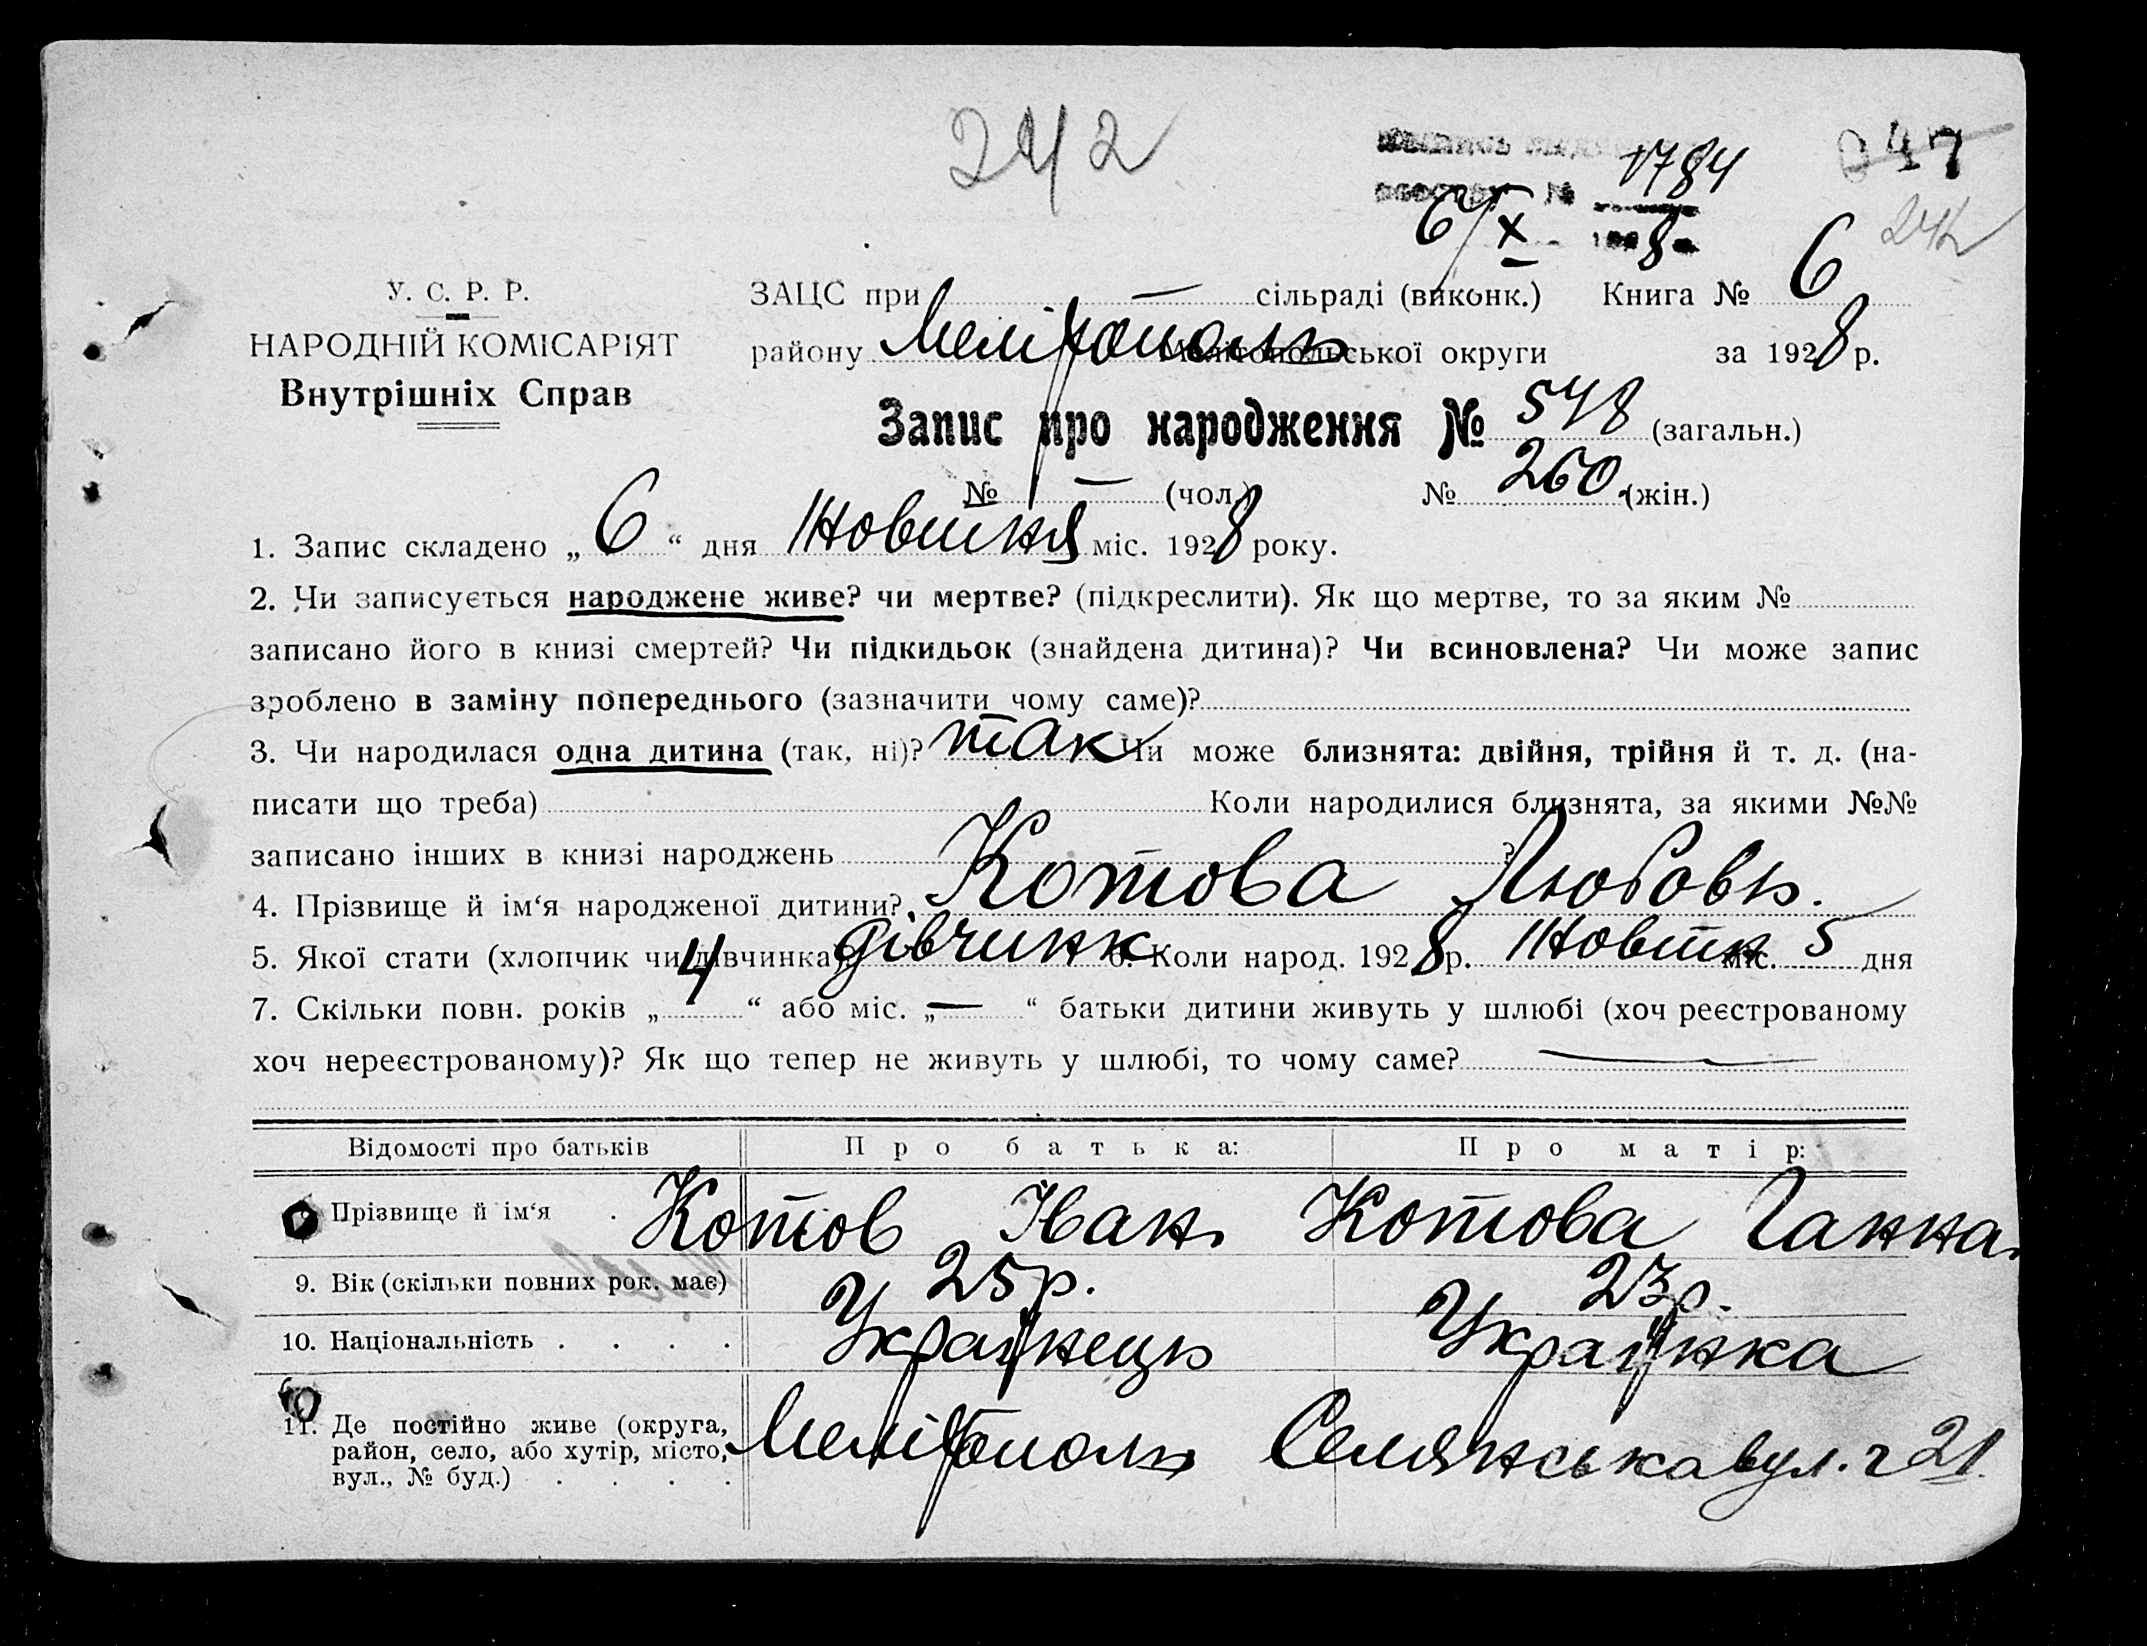 242
1784
047
6/X 8
242
У. С. Р. Р.
НАРОДНІЙ КОМІСАРІЯТ
Внутрішніх Справ
ЗАЦС при — сільраді (виконк.) Книга № 6
району Мелітополь Мелітопольської округи за 1928 р.
Запис про народження № 548 (загальн.)
№ — (чол.) № 260. (жін.)
1. Запис складено „ 6 “ дня Жовтня міс. 1928 року.
2. Чи записується народжене живе? чи мертве? (підкреслити). Як що мертве, то за яким №
записано його в книзі смертей? Чи підкидьок (знайдена дитина)? Чи всиновлена? Чи може запис
зроблено в заміну попереднього (зазначити чому саме)?
3. Чи народилася одна дитина (так, ні)? так Чи може близнята: двійня, трійня й т. д. (на-
писати що треба) Коли народилися близнята, за якими №№
записано інших в книзі народжень ?
4. Прізвище й ім‘я народженої дитини? Котова Любовь.
5. Якої стати (хлопчик чи дівчинка)? дівчинк 6. Коли народ. 1928 р. Жовтн міс. 5 дня
7. Скільки повн. років „ 4 “ або міс. „ — “ батьки дитини живуть у шлюбі (хоч реєстрованому
хоч нереєстрованому)? Як що тепер не живуть у шлюбі, то чому саме? —
Відомості про батьків Про батька: Про матір:
Прізвище й ім‘я . Котов Іван. Котова Ганна.
9. Вік (скільки повних рок. має) 25 р. 23 р.
10. Національність . . . . Українець Українка
11. Де постійно живе (округа, район, село, або хутір, місто, вул., № буд.) . . . . Мелітополь вул. 21.